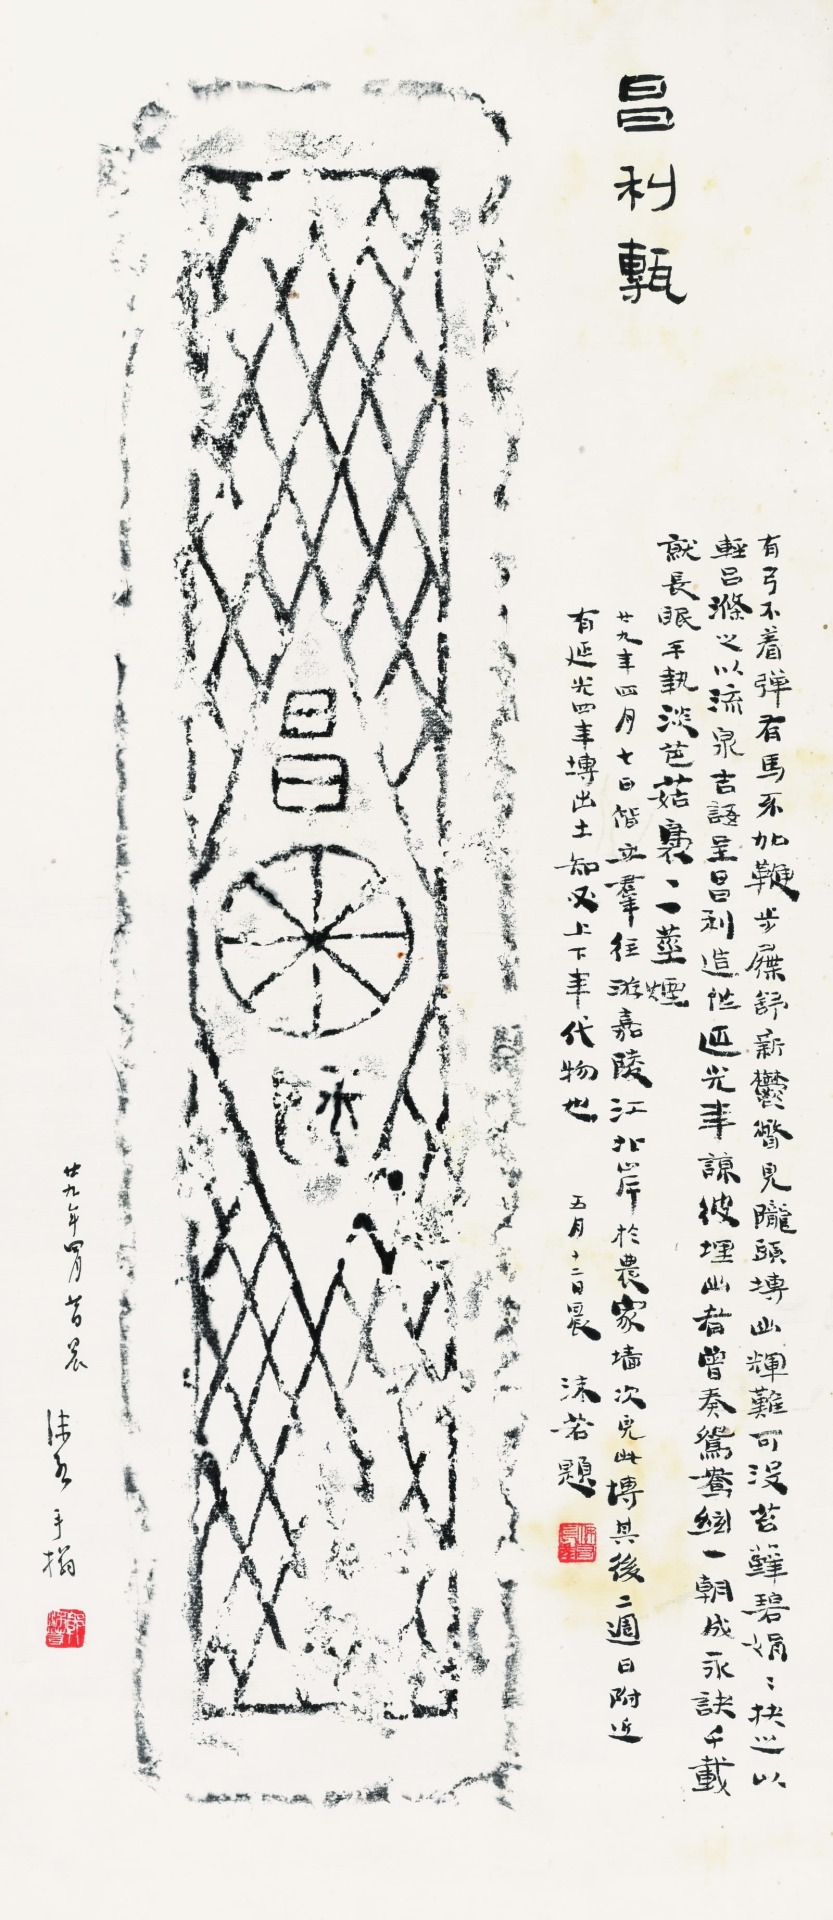 昌利甎
有弓不着彈有馬不加鞭步屧舒新鬱瞥見隴頭塼幽輝難可沒苔蘚碧娟〻抉之以
輕呂滌之以流泉吉語呈昌利造作延光年諒彼埋幽者曾奏鴛鴦絃一朝成永訣千載
就長眠手執淡芭菰裊裊一莖煙
廿九年四月七日偕立羣往游嘉陵江北岸於農家墻次見此塼其後二週日附近
有延光四年塼出土知必上下年代物也
五月十二日晨 沫若題
昌
利
廿九年四月廿日晨
沫若手搨